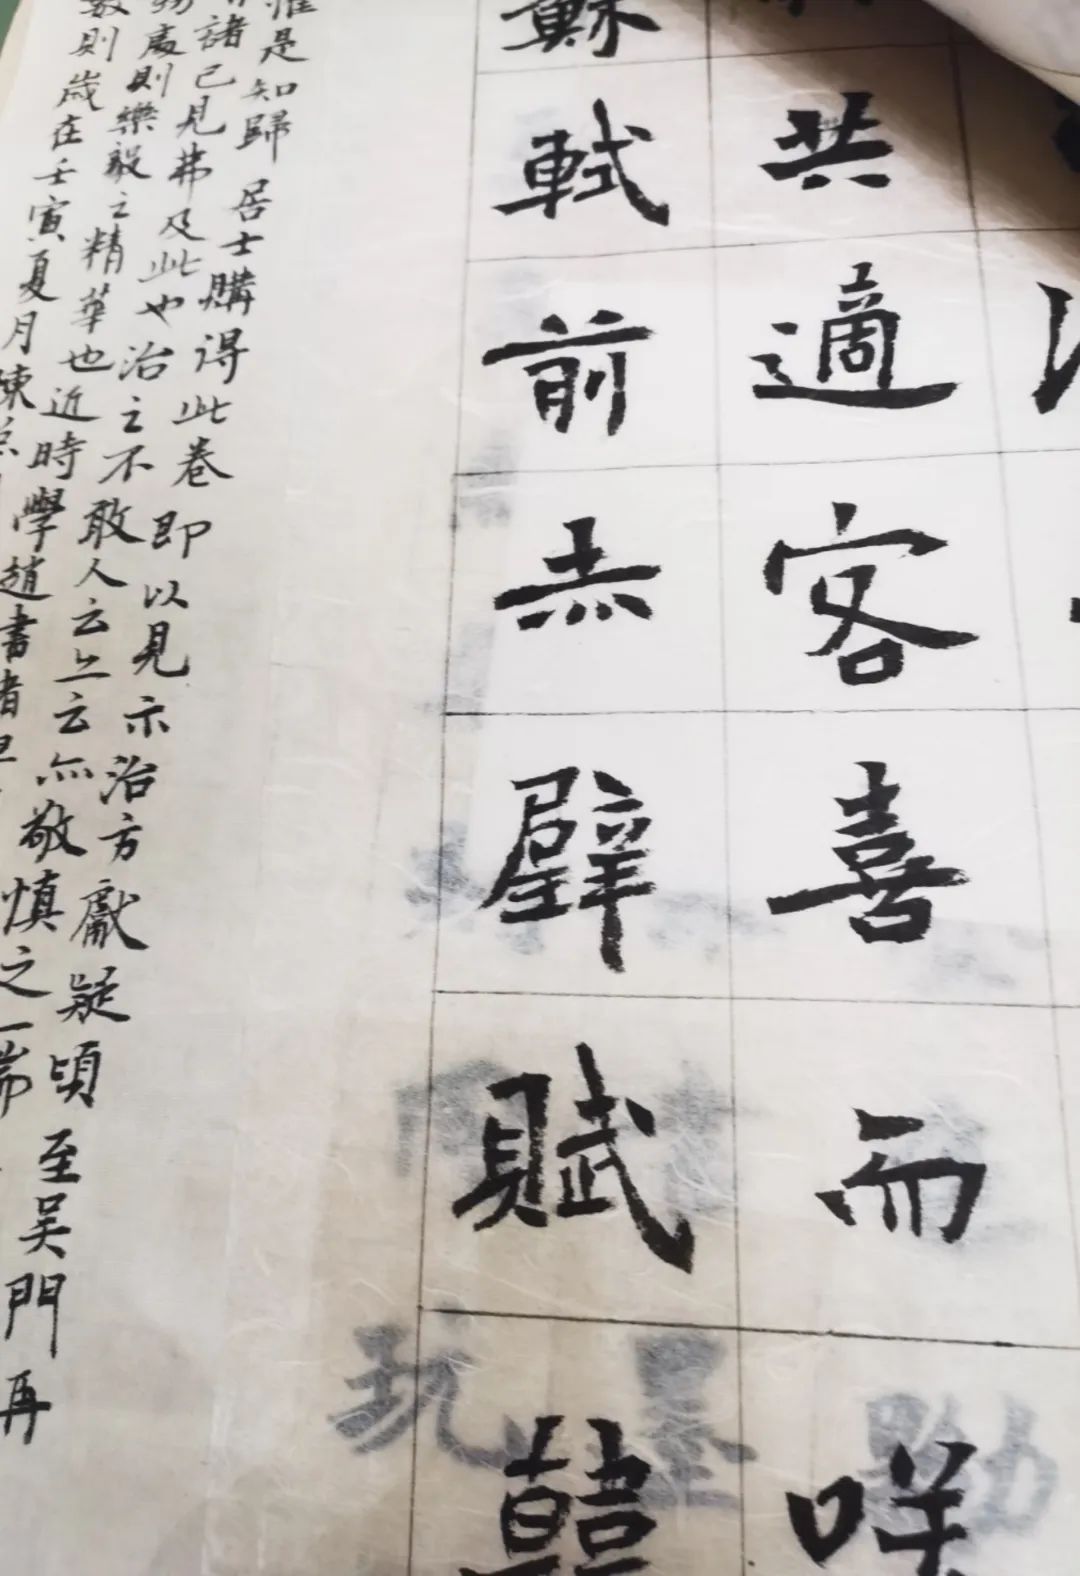 共適客喜而咲
蘇軾前赤壁賦
惟是知歸居士購得此卷即以見示治方獻疑頃至吳門再
諸己見弗及此也治之不敢人云上云亦敬慎之一端
處則樂毅之精華也近時學趙書者
數則歲在壬寅夏月陳
玩墨勤